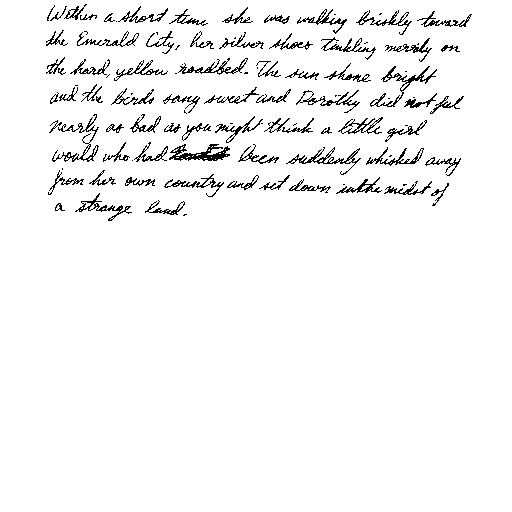 Within a short time she was walking briskly toward
the Emerald City, her silver shoes tinkling merrily on
the hard, yellow roadbed. The sun shone bright
and the birds sang sweet and Dorothy did not feel
nearly as bad as you might think a little girl
would who had been suddenly whisked away
from her own country and set down in the midst of
a strange land.